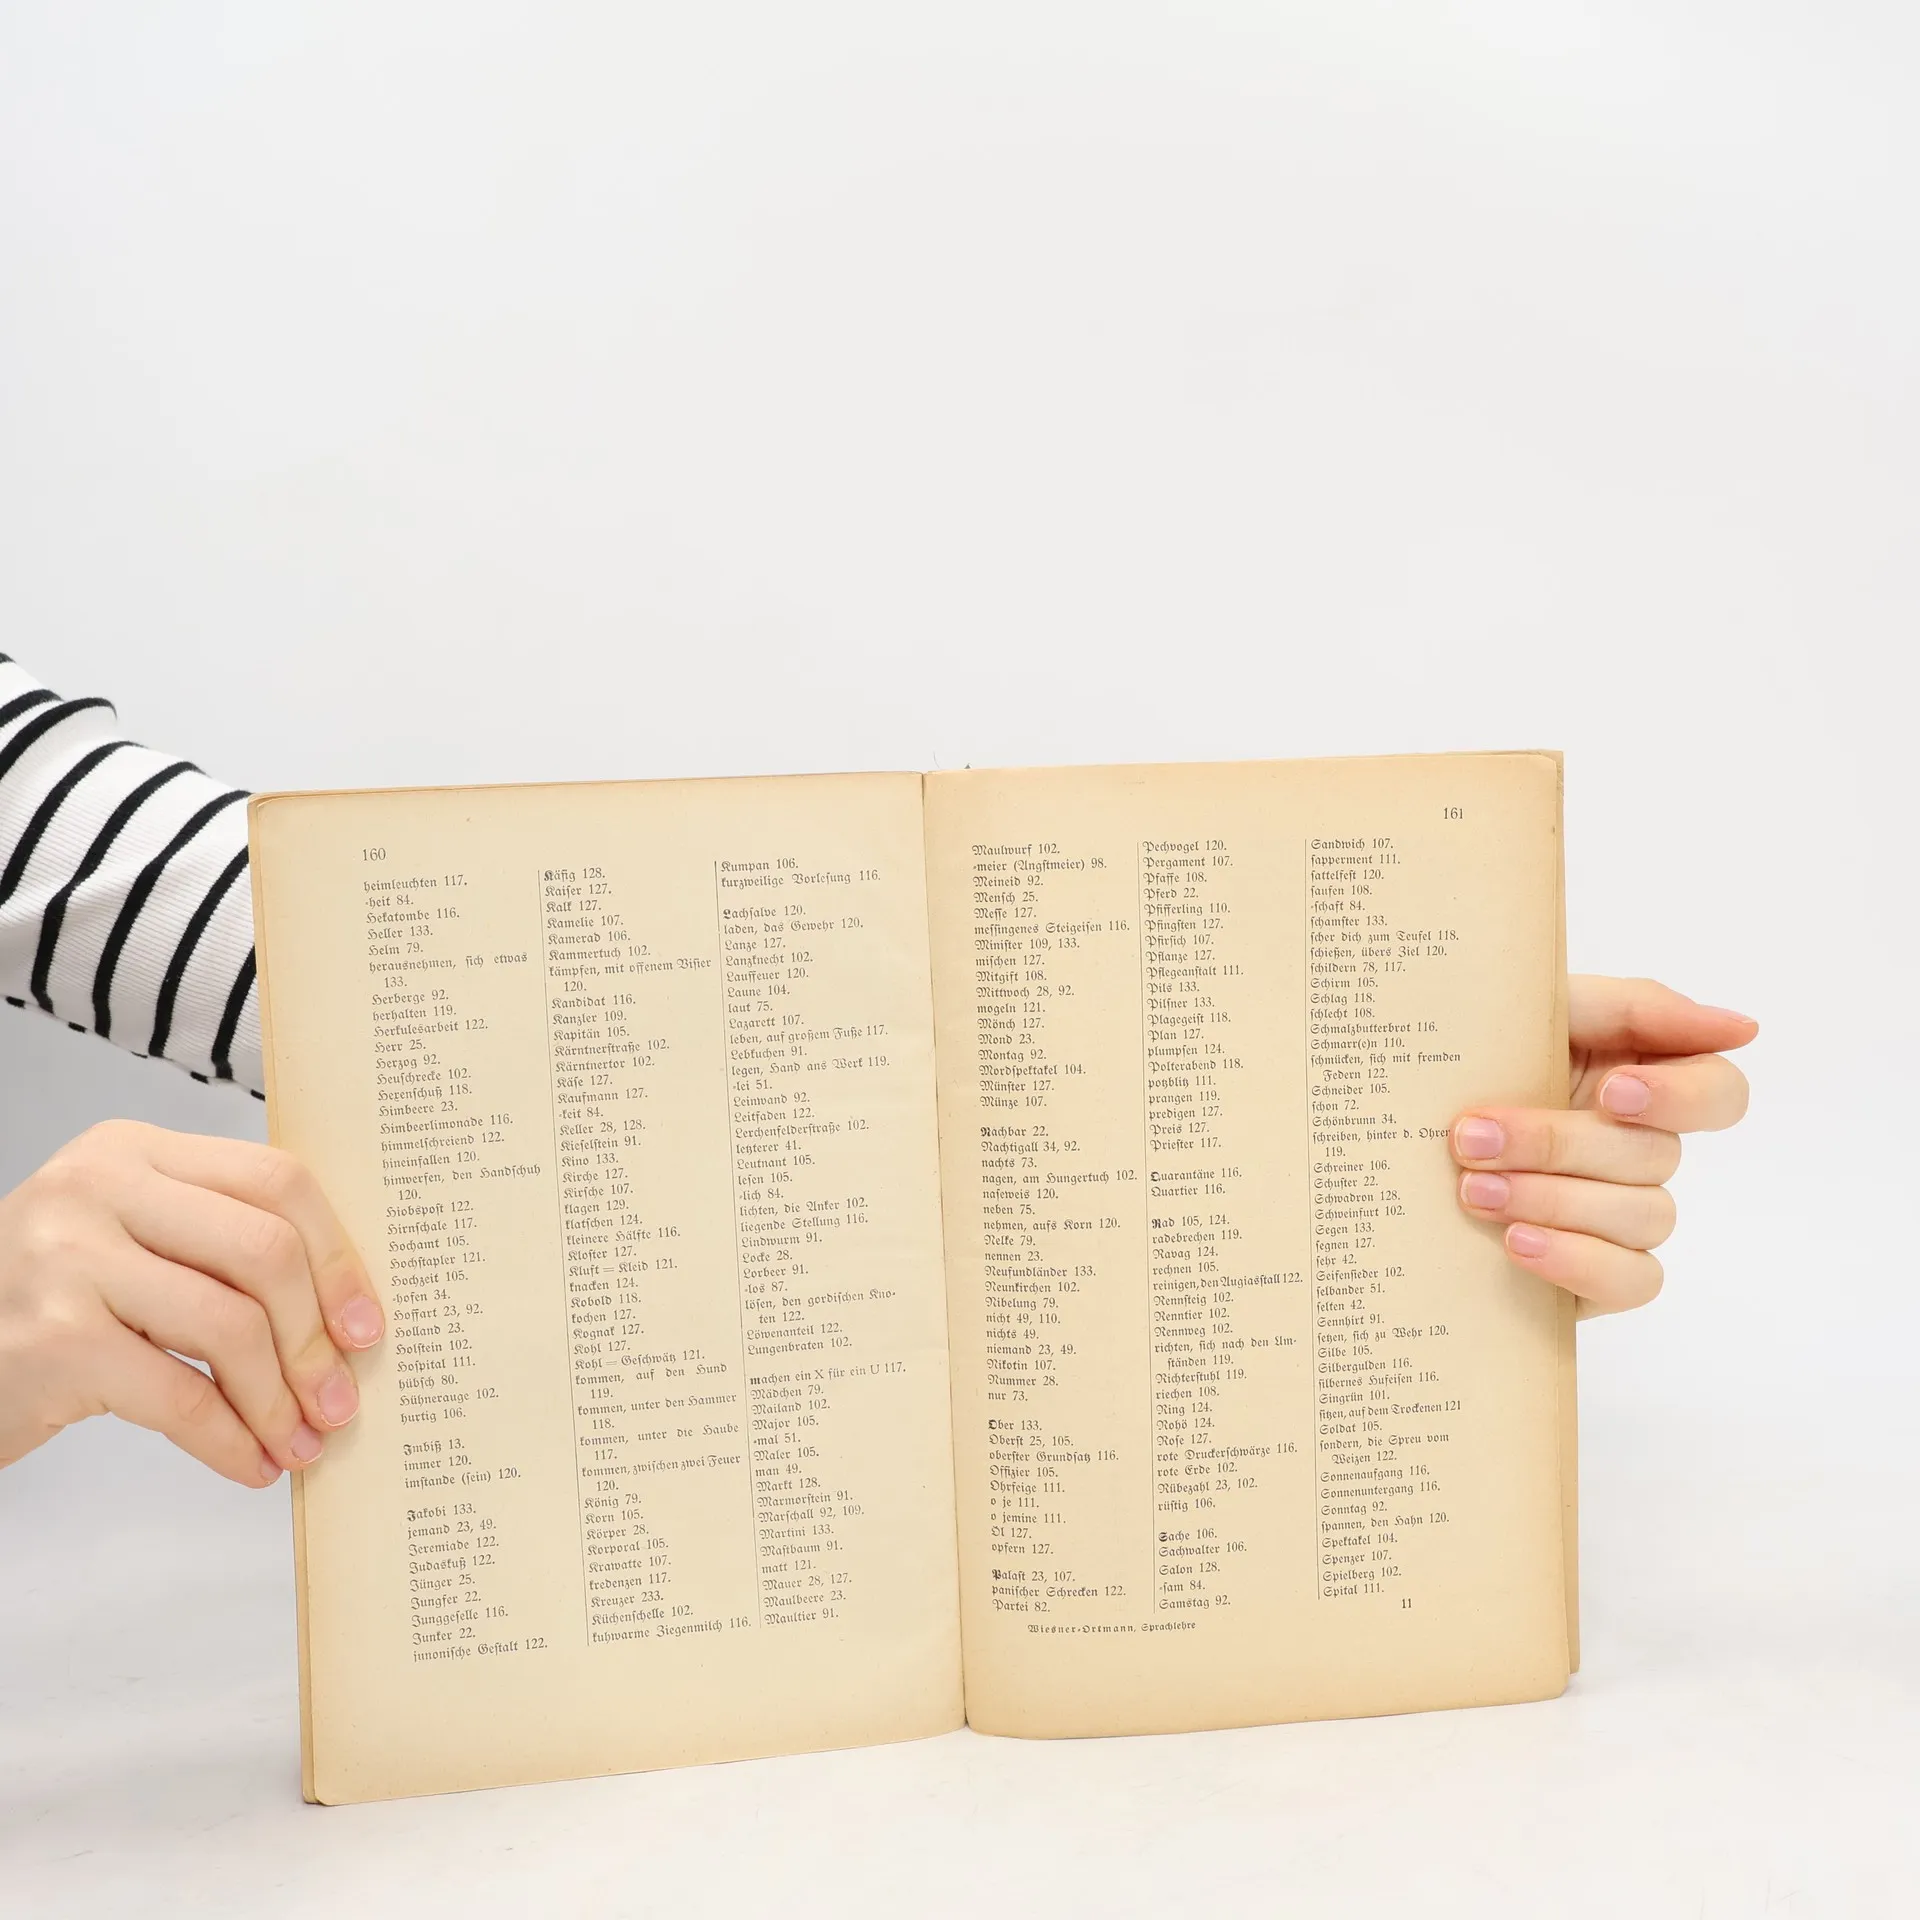 160
heimleuchten 117.
-heit 84.
Hekatombe 116.
Heller 133.
Helm 79.
herausnehmen, sich etwas
133.
Herberge 92.
herhalten 119.
Herkulesarbeit 122.
Herr 25.
Herzog 92.
Heuschrecke 102.
Hexenschuß 118.
Himbeere 23.
Himbeerlimonade 116.
himmelschreiend 122.
hineinfallen 120.
hinwerfen, den Handschuh
120.
Hiobspost 122.
Hirnschale 117.
Hochamt 105.
Hochstapler 121.
Hochzeit 105.
-hofen 34.
Hoffart 23, 92.
Holland 23.
Holstein 102.
Hospital 111.
hübsch 80.
Hühnerauge 102.
hurtig 106.
Imbiß 13.
immer 120.
imstande (sein) 120.
Jakobi 133.
jemand 23, 49.
Jeremiade 122.
Judaskuß 122.
Jünger 25.
Jungfer 22.
Junggeselle 116.
Junker 22.
junonische Gestalt 122.
Käfig 128.
Kaiser 127.
Kalk 127.
Kamelie 107.
Kamerad 106.
Kammertuch 102.
kämpfen, mit offenem Visier
120.
Kandidat 116.
Kanzler 109.
Kapitän 105.
Kärntnerstraße 102.
Kärntnertor 102.
Käse 127.
Kaufmann 127.
-keit 84.
Keller 28, 128.
Kieselstein 91.
Kino 133.
Kirche 127.
Kirsche 107.
klagen 129.
klatschen 124.
kleinere Hälfte 116.
Kloster 127.
Kluft = Kleid 121.
knacken 124.
Kobold 118.
kochen 127.
Kognak 127.
Kohl 127.
Kohl = Geschwätz 121.
kommen, auf den Hund
119.
kommen, unter den Hammer
118.
kommen, unter die Haube
117.
kommen, zwischen zwei Feuer
120.
König 79.
Korn 105.
Körper 28.
Korporal 105.
Krawatte 107.
kredenzen 117.
Kreuzer 233.
Küchenschelle 102.
kuhwarme Ziegenmilch 116.
Kumpan 106.
kurzweilige Vorlesung 116.
Lachsalve 120.
laden, das Gewehr 120.
Lanze 127.
Lanzknecht 102.
Lauffeuer 120.
Laune 104.
laut 75.
Lazarett 107.
leben, auf großem Fuße 117.
Lebkuchen 91.
legen, Hand ans Werk 119.
-lei 51.
Leinwand 92.
Leitfaden 122.
Lerchenfelderstraße 102.
letzterer 41.
Leutnant 105.
lesen 105.
-lich 84.
lichten, die Anker 102.
liegende Stellung 116.
Lindwurm 91.
Locke 28.
Lorbeer 91.
-los 87.
lösen, den gordischen Kno-
ten 122.
Löwenanteil 122.
Lungenbraten 102.
machen ein X für ein U 117.
Mädchen 79.
Mailand 102.
Major 105.
-mal 51.
Maler 105.
man 49.
Markt 128.
Marmorstein 91.
Marschall 92, 109.
Martini 133.
Mastbaum 91.
matt 121.
Mauer 28, 127.
Maulbeere 23.
Maultier 91.
161
Maulwurf 102.
-meier (Angstmeier) 98.
Meineid 92.
Mensch 25.
Messe 127.
messingenes Steigeisen 116.
Minister 109, 133.
mischen 127.
Mitgift 108.
Mittwoch 28, 92.
mogeln 121.
Mönch 127.
Mond 23.
Montag 92.
Mordspektakel 104.
Münster 127.
Münze 107.
Nachbar 22.
Nachtigall 34, 92.
nachts 73.
nagen, am Hungertuch 102.
naseweis 120.
neben 75.
nehmen, aufs Korn 120.
Nelke 79.
nennen 23.
Neufundländer 133.
Neunkirchen 102.
Nibelung 79.
nicht 49, 110.
nichts 49.
niemand 23, 49.
Nikotin 107.
Nummer 28.
nur 73.
Ober 133.
Oberst 25, 105.
oberster Grundsatz 116.
Offizier 105.
Ohrfeige 111.
o je 111.
o jemine 111.
Öl 127.
opfern 127.
Palast 23, 107.
panischer Schrecken 122.
Partei 82.
Pechvogel 120.
Pergament 107.
Pfaffe 108.
Pferd 22.
Pfifferling 110.
Pfingsten 127.
Pfirsich 107.
Pflanze 127.
Pflegeanstalt 111.
Pils 133.
Pilsner 133.
Plagegeist 118.
Plan 127.
plumpsen 124.
Polterabend 118.
potzblitz 111.
prangen 119.
predigen 127.
Preis 127.
Priester 117.
Quarantäne 116.
Quartier 116.
Rad 105, 124.
radebrechen 119.
Ravag 124.
rechnen 105.
reinigen, den Augiasstall 122.
Rennsteig 102.
Renntier 102.
Rennweg 102.
richten, sich nach den Um-
ständen 119.
Richterstuhl 119.
riechen 108.
Ring 124.
Rohö 124.
Rose 127.
rote Druckerschwärze 116.
rote Erde 102.
Rübezahl 23, 102.
rüstig 106.
Sache 106.
Sachwalter 106.
Salon 128.
-sam 84.
Samstag 92.
Sandwich 107.
sapperment 111.
sattelfest 120.
saufen 108.
-schaft 84.
schamster 133.
scher dich zum Teufel 118.
schießen, übers Ziel 120.
schildern 78, 117.
Schirm 105.
Schlag 118.
schlecht 108.
Schmalzbutterbrot 116.
Schmarr(e)n 110.
schmücken, sich mit fremden
Federn 122.
Schneider 105.
schon 72.
Schönbrunn 34.
schreiben, hinter d. Ohren
119.
Schreiner 106.
Schuster 22.
Schwadron 128.
Schweinfurt 102.
Segen 133.
segnen 127.
sehr 42.
Seifensieder 102.
selbander 51.
selten 42.
Sennhirt 91.
setzen, sich zu Wehr 120.
Silbe 105.
Silbergulden 116.
silbernes Hufeisen 116.
Singrün 101.
sitzen, auf dem Trockenen 121
Soldat 105.
sondern, die Spreu vom
Weizen 122.
Sonnenaufgang 116.
Sonnenuntergang 116.
Sonntag 92.
spannen, den Hahn 120.
Spektakel 104.
Spenzer 107.
Spielberg 102.
Spital 111.
Wiesner-Ortmann, Sprachlehre
11